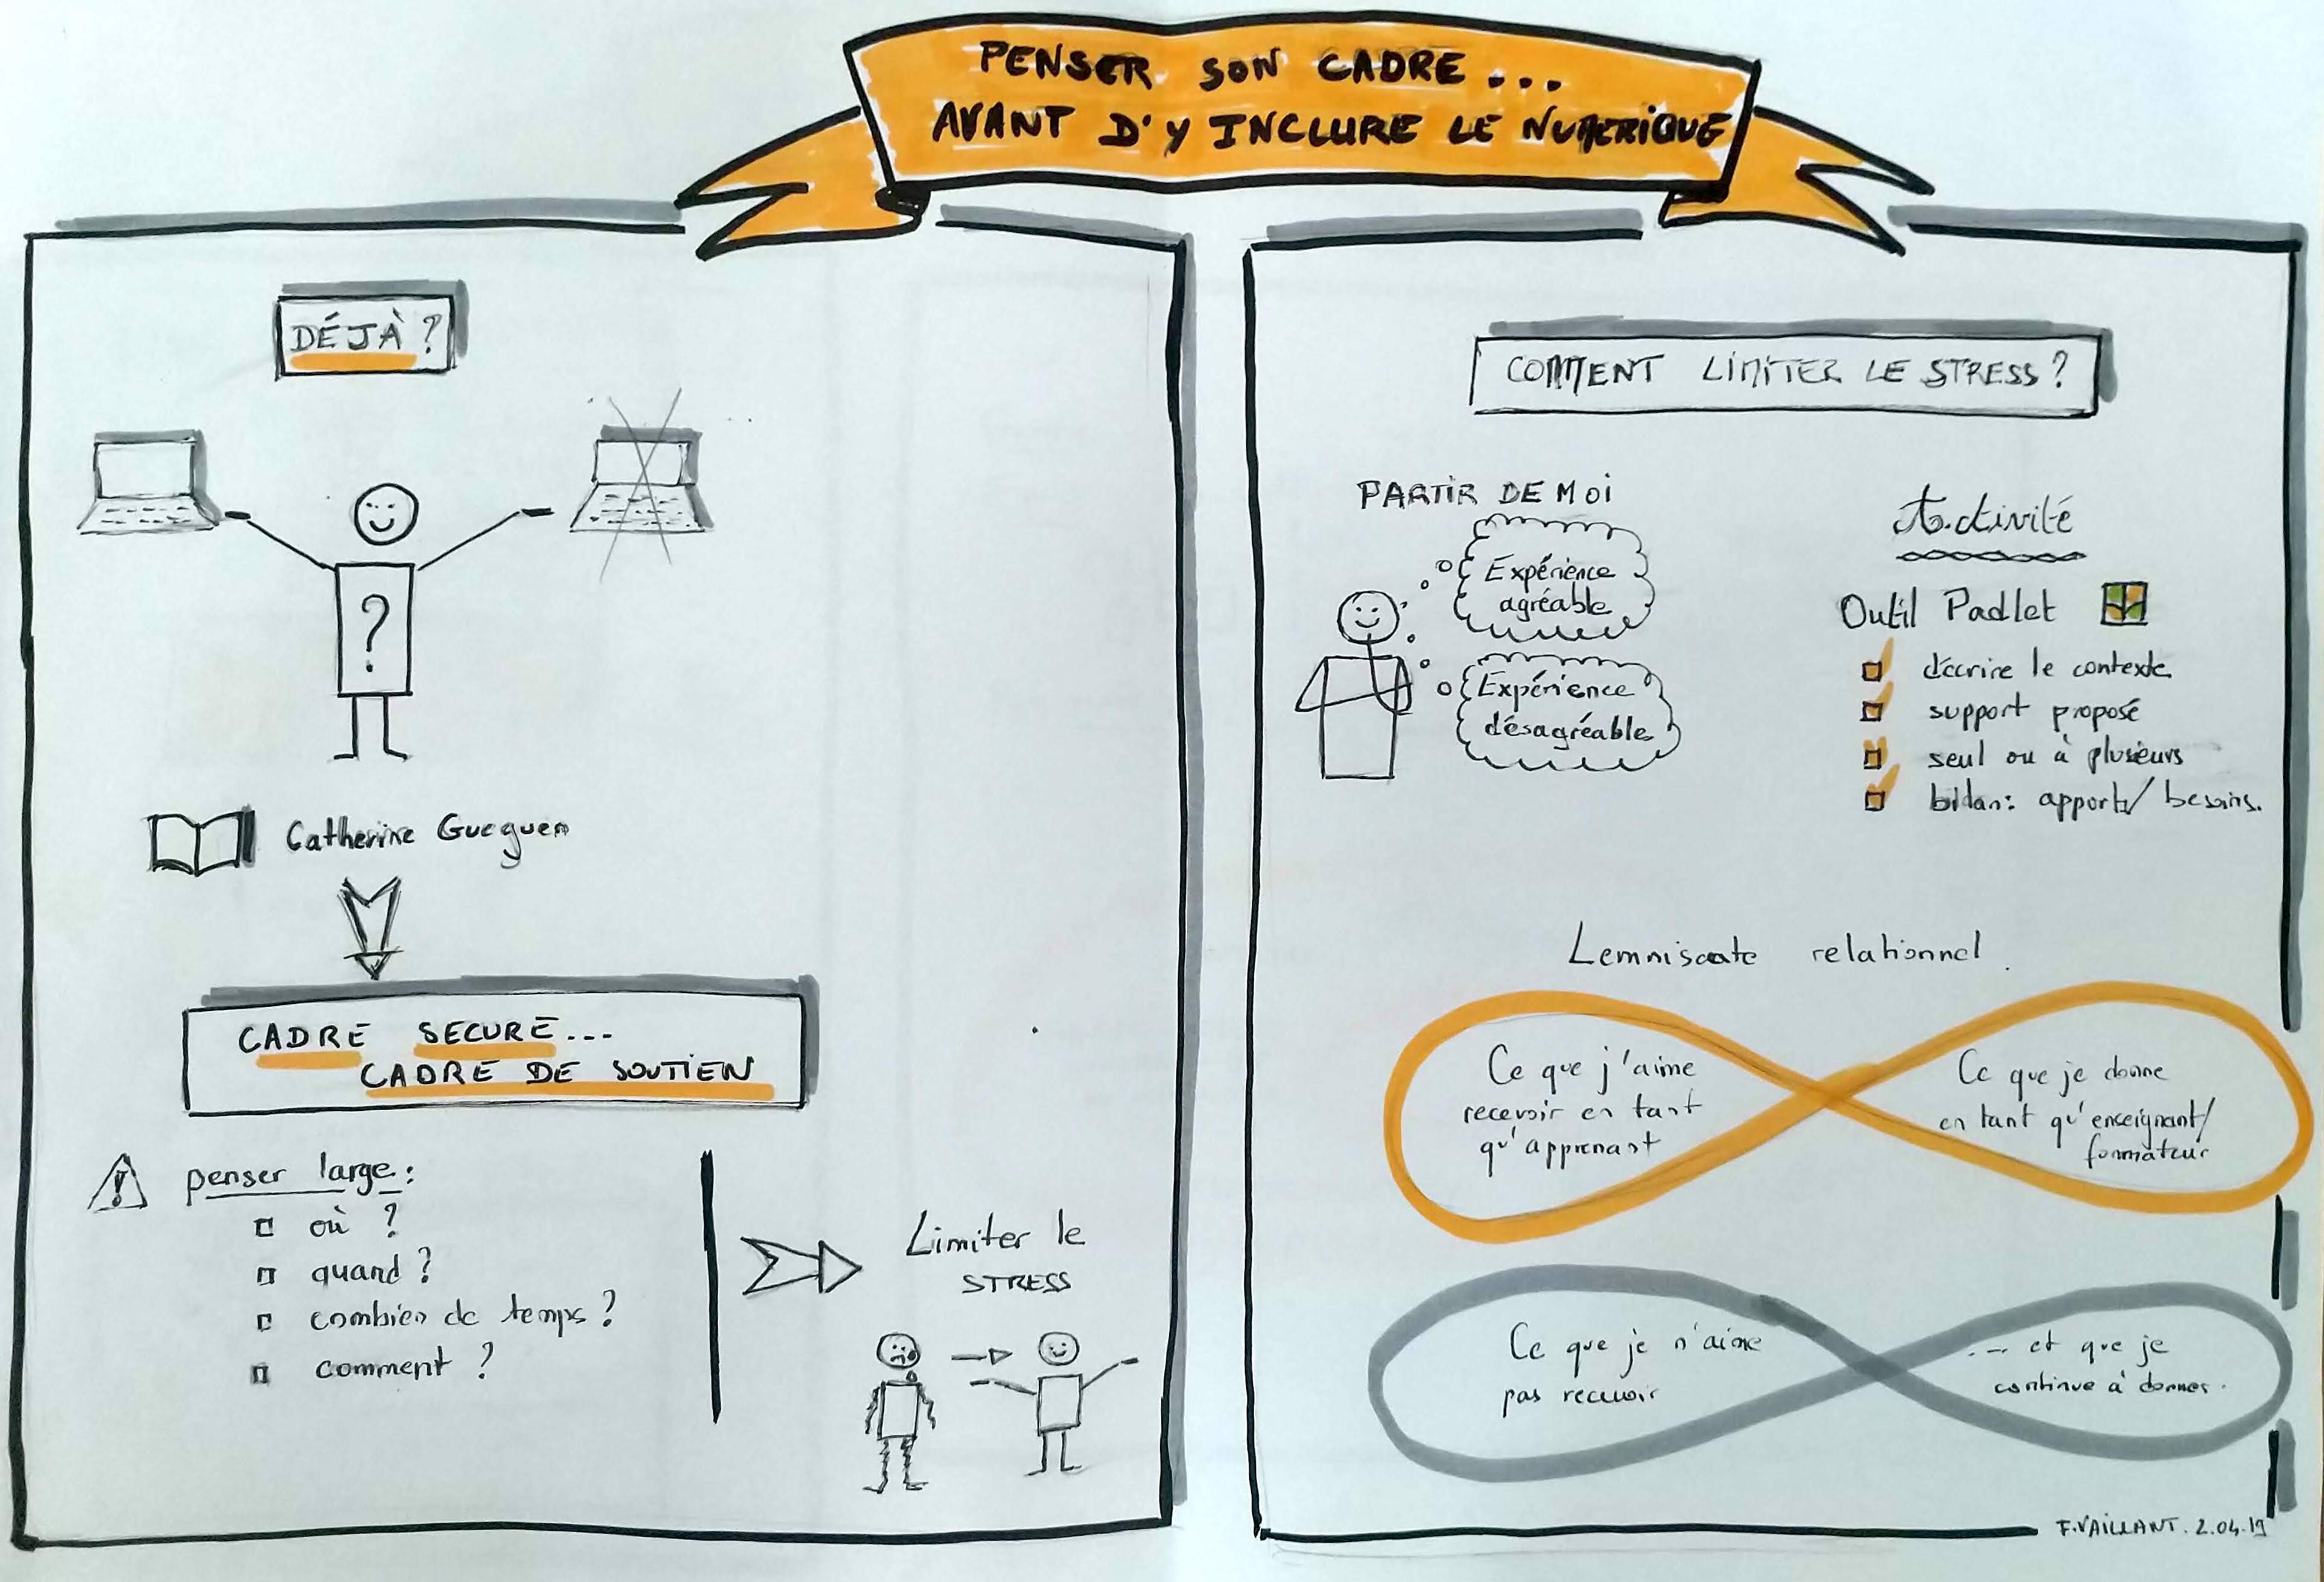 PENSER SON CADRE...
AVANT D'Y INCLURE LE NUMERIQUE
DÉJÀ ?
?
Catherine Gueguen
CADRE SECURE...
CADRE DE SOUTIEN
! penser large :
où ?
quand ?
combien de temps ?
comment ?
Limiter le
STRESS
COMMENT LIMITER LE STRESS ?
PARTIR DE MOI
Expérience
agréable
Expérience
désagréable
Activité
Outil Padlet
décrire le contexte
support proposé
seul ou à plusieurs
bilan : apports/ besoins.
Lemniscate relationnel
Ce que j'aime
recevoir en tant
qu'apprenant
Ce que je donne
en tant qu'enseignant/
formateur
Ce que je n'aime
pas recevoir
... et que je
continue à donner.
F.VAILLANT. 2.04.19